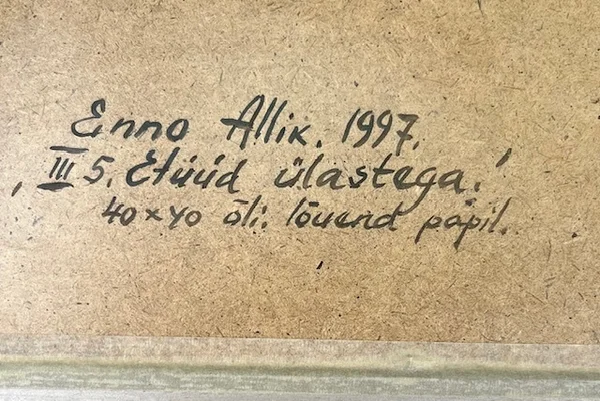 Enno Allik. 1997.
, III 5. Etüüd ülastega.'
40×40 õli. lõuend papil.